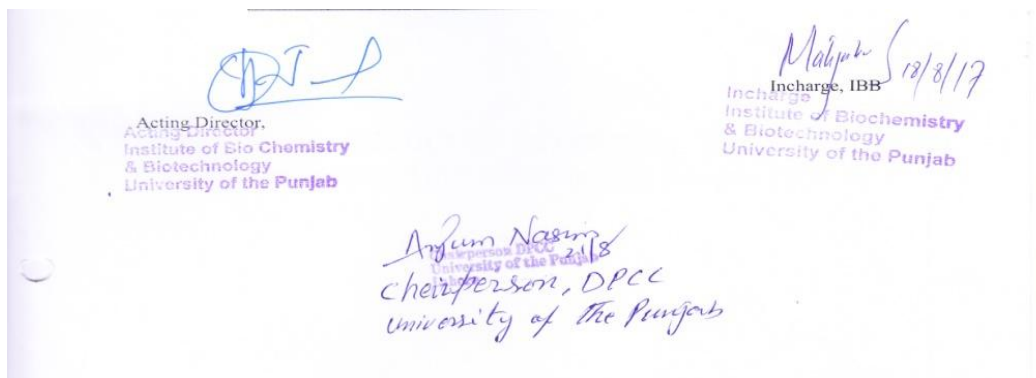 18/8/17
Incharge, IBB
Incharge
Institute of Biochemistry
& Biotechnology
University of the Punjab
Acting Director,
Acting Director
Institute of Bio Chemistry
& Biotechnology
University of the Punjab
Anjum Nasim
21/8
Chairperson DPCC
University of the Punjab
Chairperson, DPCC
University of the Punjab